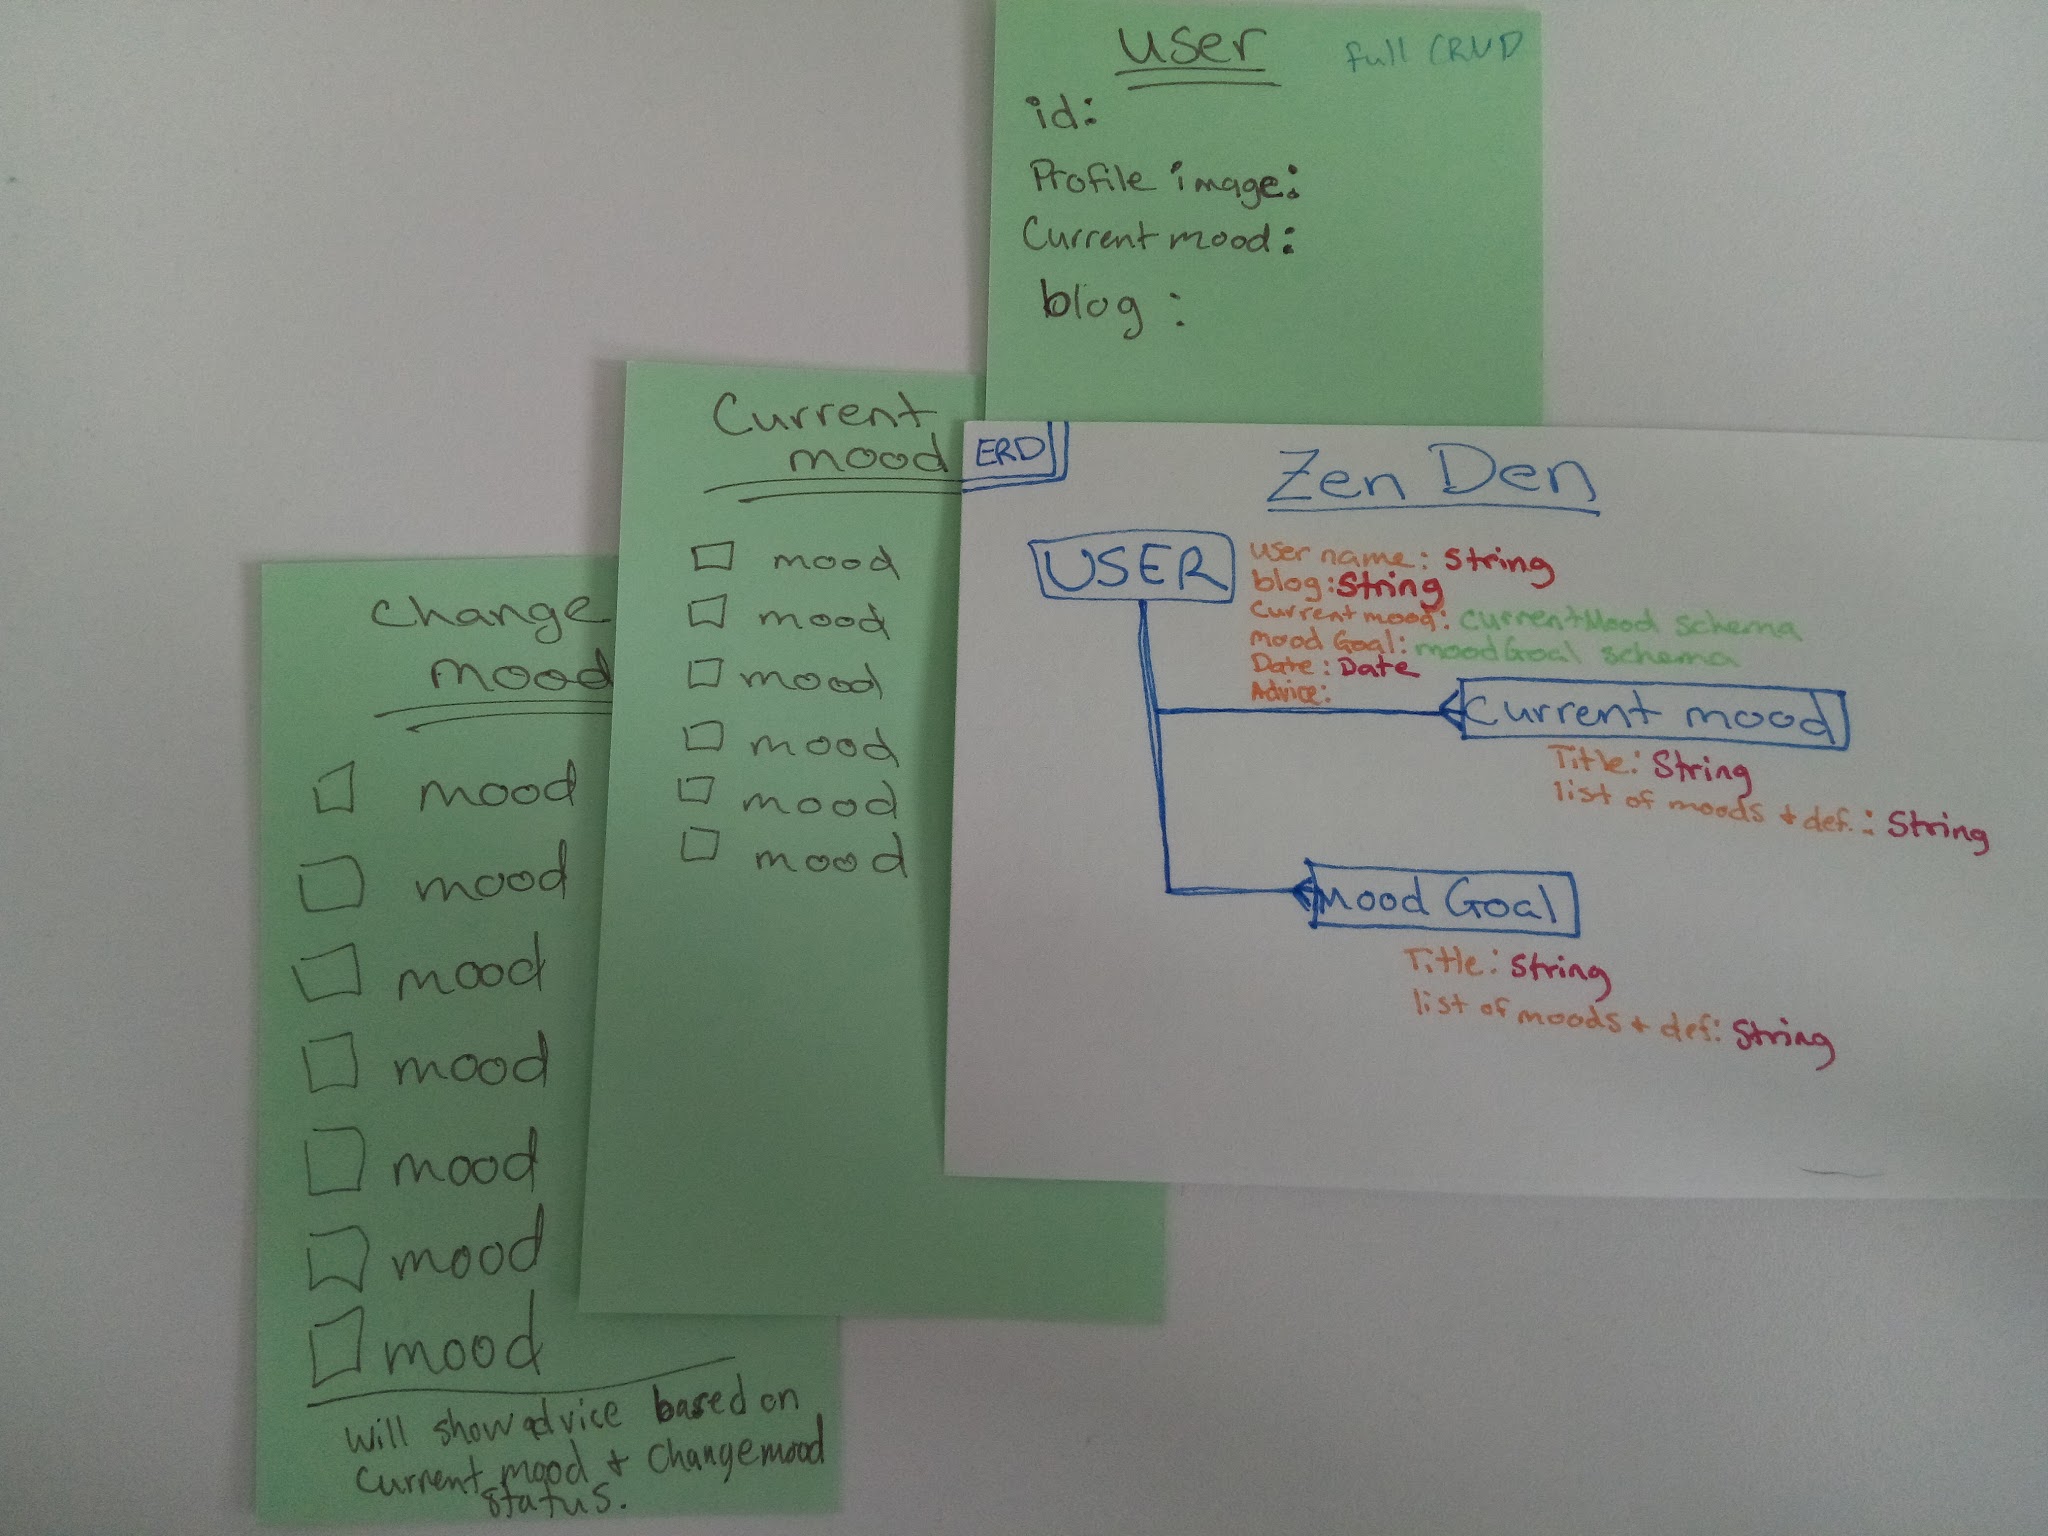 user
full CRUD
id:
Profile image:
Current mood:
blog :
Current
mood
mood
mood
mood
mood
mood
mood
change
mood
mood
mood
mood
mood
mood
mood
mood
Will show advice based on
Current mood + Changemood
status.
ERD
Zen Den
USER
user name: String
blog: String
Current mood: currentMood schema
mood Goal: moodGoal schema
Date: Date
Advice:
Current mood
Title: String
list of moods + def.: String
mood Goal
Title: String
list of moods + def: String